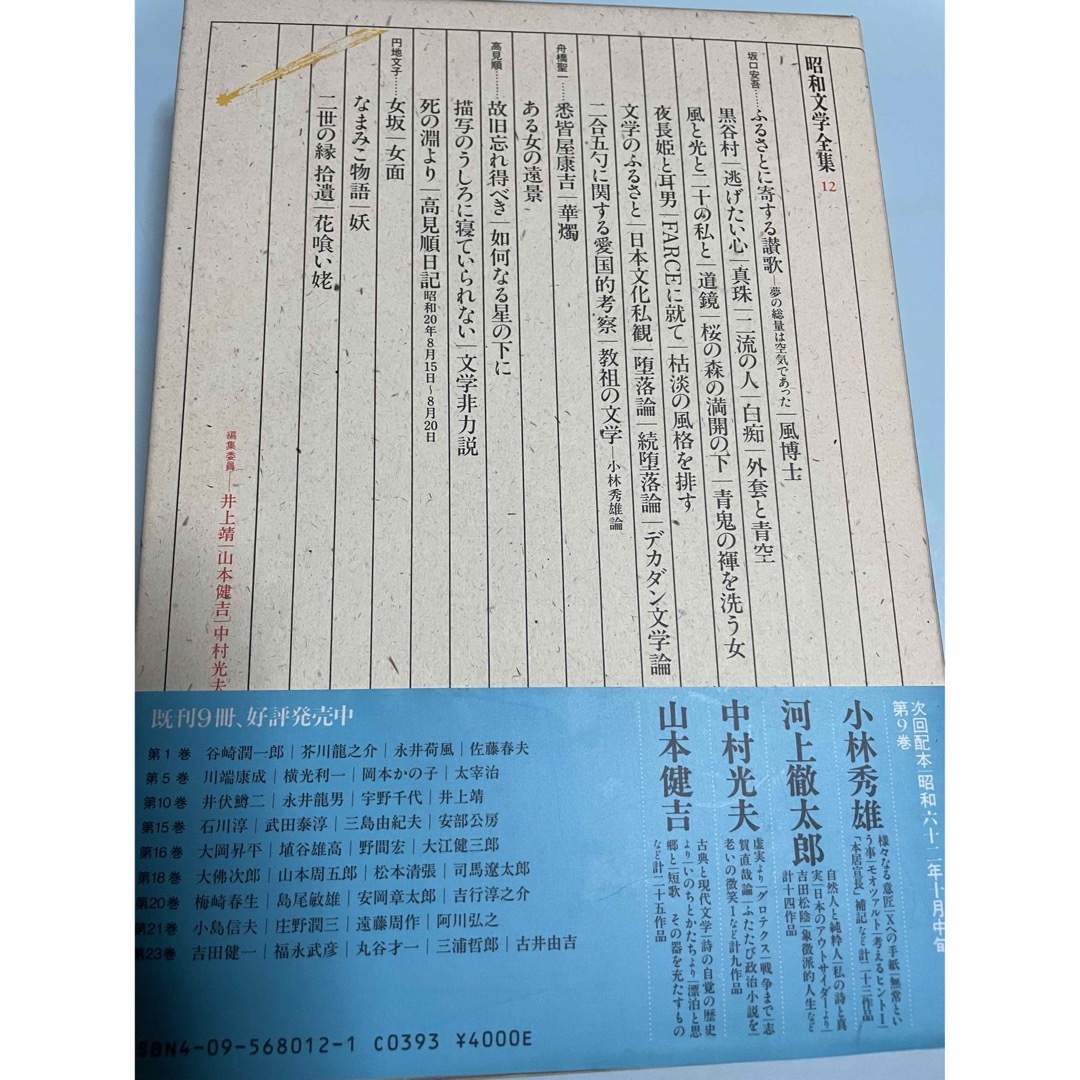 昭和文学全集 12
坂口安吾……ふるさとに寄する讃歌―夢の総量は空気であった|風博士
黒谷村|逃げたい心|真珠|二流の人|白痴|外套と青空
風と光と二十の私と|道鏡|桜の森の満開の下|青鬼の褌を洗う女
夜長姫と耳男|FARCEに就て|枯淡の風格を排す
文学のふるさと|日本文化私観|堕落論|続堕落論|デカダン文学論
二合五勺に関する愛国的考察|教祖の文学―小林秀雄論
舟橋聖一……悉皆屋康吉|華燭
ある女の遠景
高見順……故旧忘れ得べき|如何なる星の下に
描写のうしろに寝ていられない|文学非力説
死の淵より|高見順日記 昭和20年8月15日~8月20日
円地文子……女坂|女面
なまみこ物語|妖
二世の縁 拾遺|花喰い姥
編集委員―井上靖|山本健吉|中村光夫
次回配本|昭和六十二年十月中旬
第9巻
小林秀雄
様々なる意匠|Xへの手紙|無常とい
う事|モオツァルト|考えるヒントⅠ
「本居宣長」補記など計二十三作品
河上徹太郎
自然人と純粋人|私の詩と真
実|日本のアウトサイダーより
吉田松陰|象徴派的人生など
計十四作品
中村光夫
虚実より|グロテクス|戦争まで|志
賀直哉論|ふたたび政治小説を
老いの微笑Ⅰなど計九作品
山本健吉
古典と現代文学|詩の自覚の歴史
より|いのちとかたちより|漂泊と思
郷と|短歌 その器を充たすもの
など計二十五作品
既刊9冊、好評発売中
第1巻 谷崎潤一郎|芥川龍之介|永井荷風|佐藤春夫
第5巻 川端康成|横光利一|岡本かの子|太宰治
第10巻 井伏鱒二|永井龍男|宇野千代|井上靖
第15巻 石川淳|武田泰淳|三島由紀夫|安部公房
第16巻 大岡昇平|埴谷雄高|野間宏|大江健三郎
第18巻 大佛次郎|山本周五郎|松本清張|司馬遼太郎
第20巻 梅崎春生|島尾敏雄|安岡章太郎|吉行淳之介
第21巻 小島信夫|庄野潤三|遠藤周作|阿川弘之
第23巻 吉田健一|福永武彦|丸谷才一|三浦哲郎|古井由吉
SBN4-09-568012-1 C0393 ¥4000E